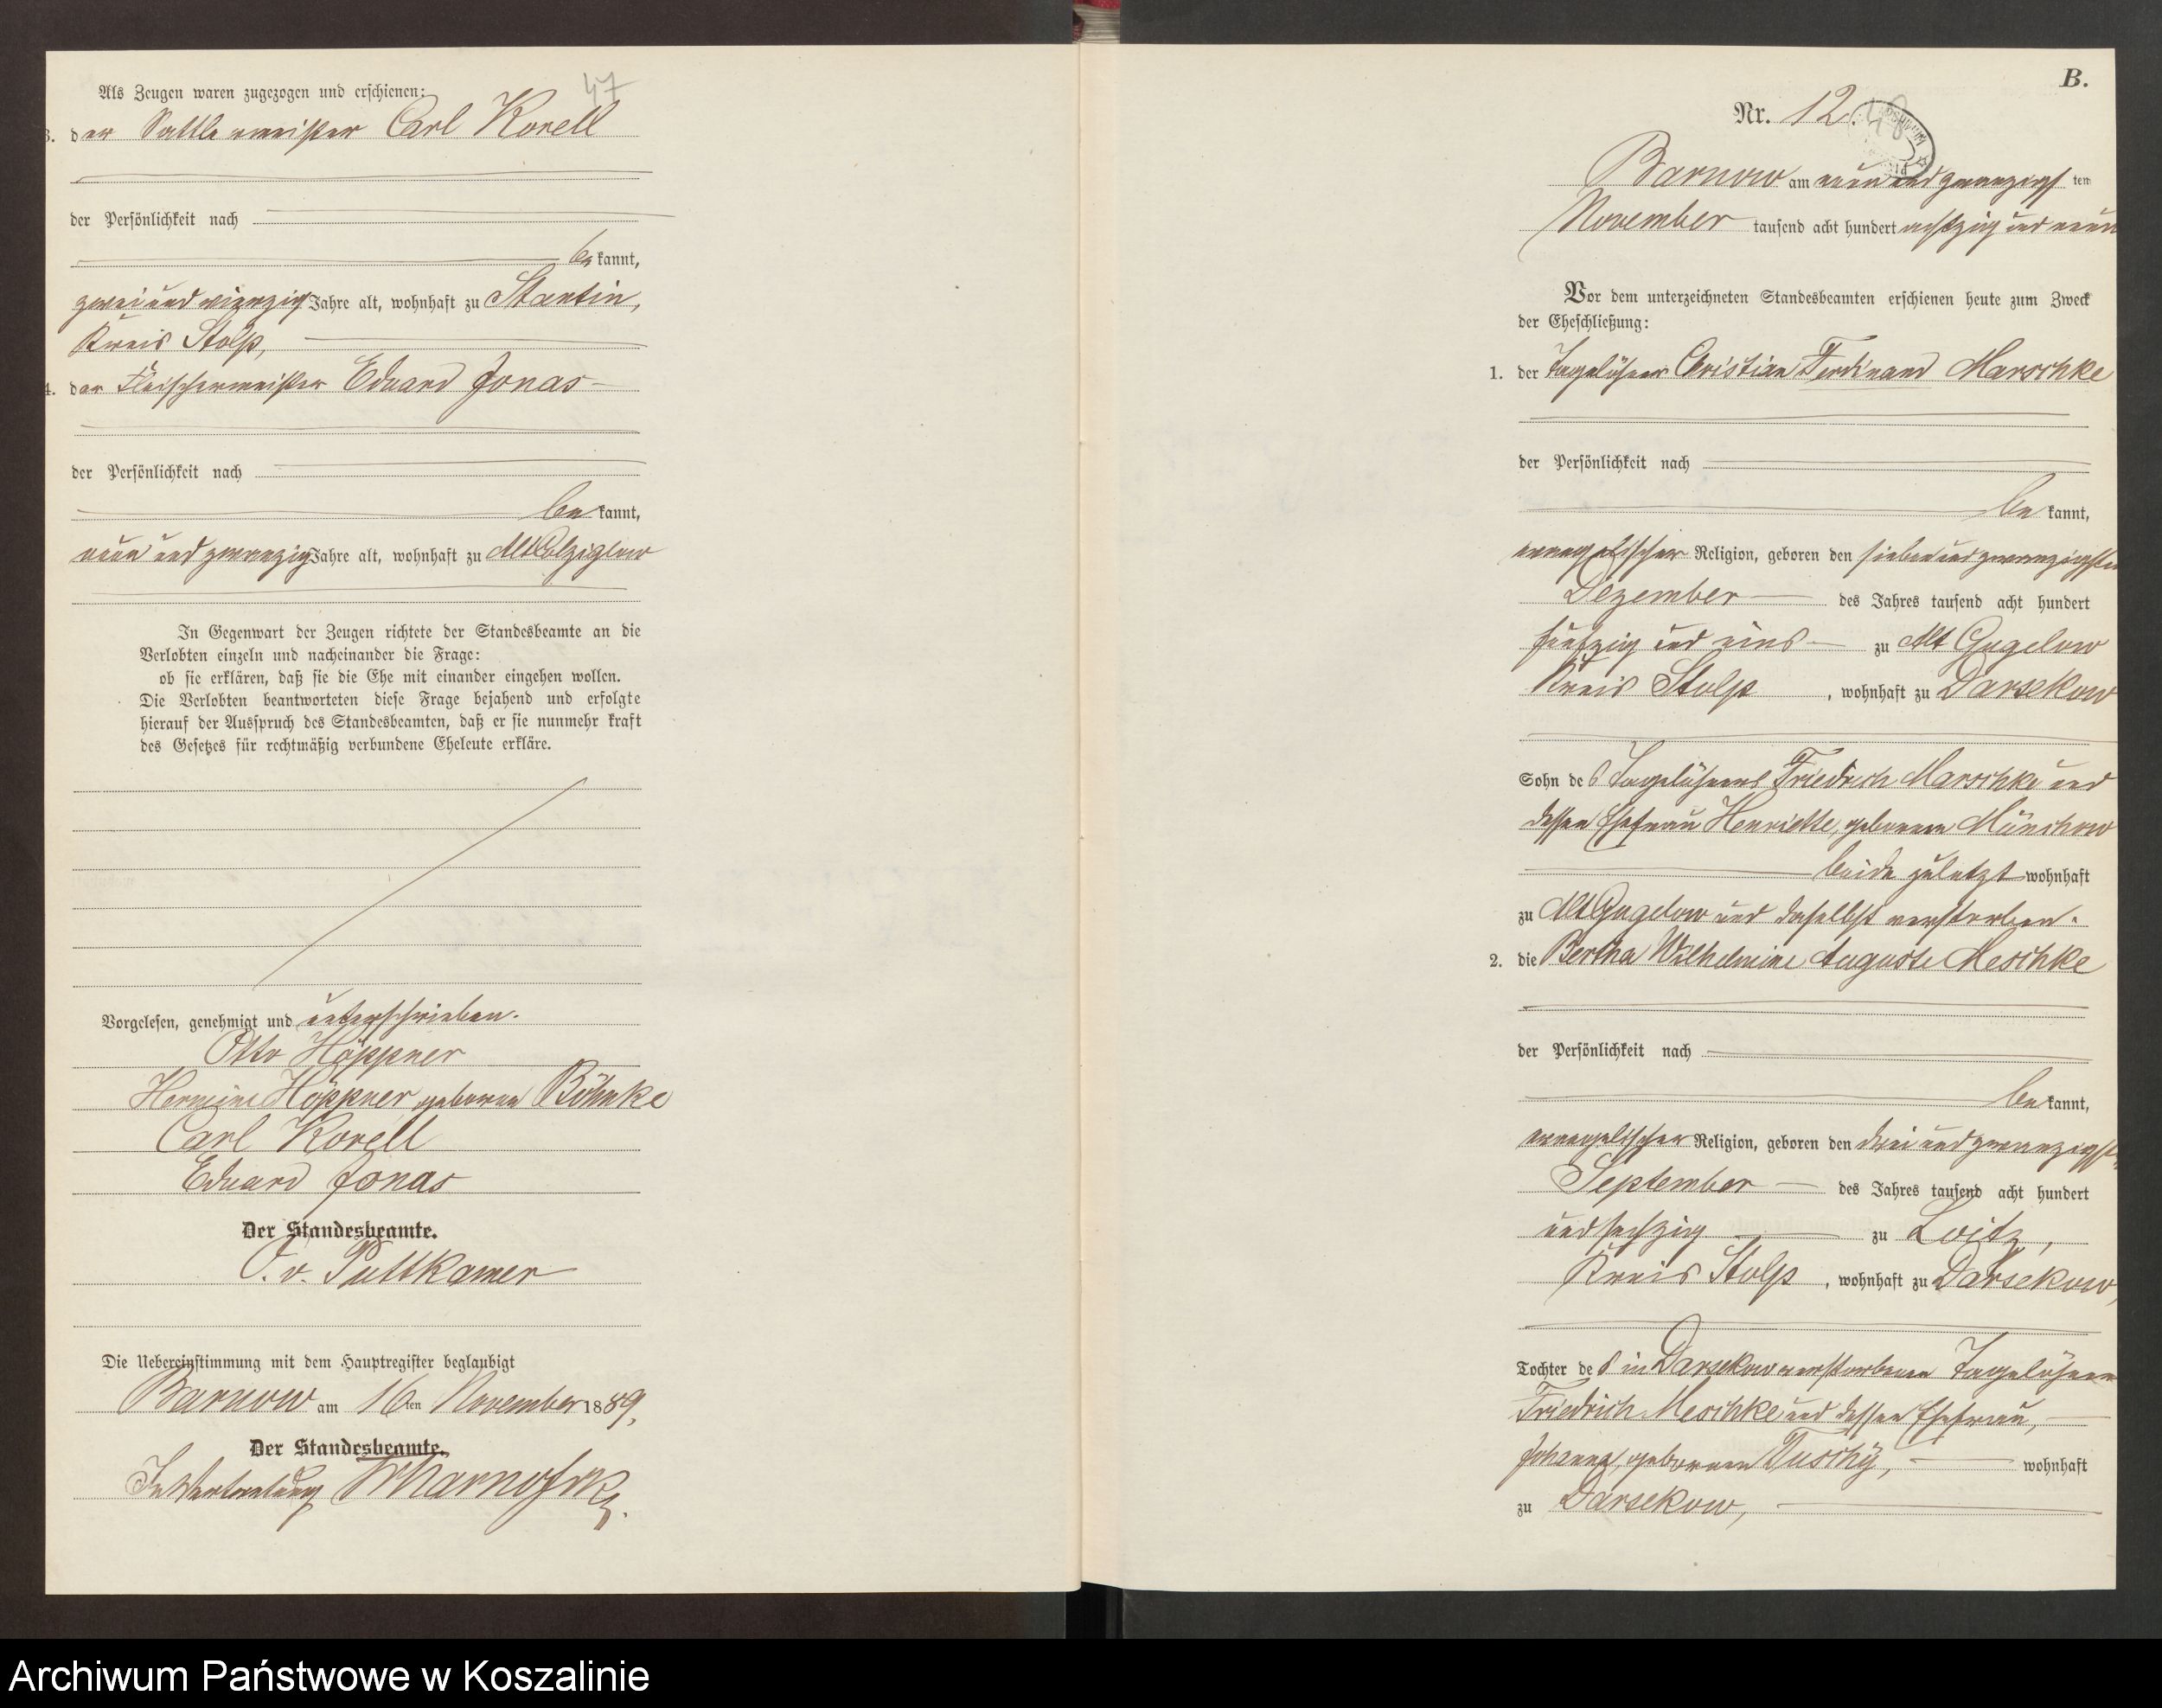 47
Als Zeugen waren zugezogen und erschienen:
3. der Sattlermeister Carl Korell
der Persönlichkeit nach
bekannt,
zwei und vierzig Jahre alt, wohnhaft zu Starnin,
Kreis Stolp,
4. der Fleischermeister Eduard Jonas
der Persönlichkeit nach
bekannt,
neun und zwanzig Jahre alt, wohnhaft zu Alt Colziglow
In Gegenwart der Zeugen richtete der Standesbeamte an die
Verlobten einzeln und nacheinander die Frage:
ob sie erklären, daß sie die Ehe mit einander eingehen wollen.
Die Verlobten beantworteten diese Frage bejahend und erfolgte
hierauf der Ausspruch des Standesbeamten, daß er sie nunmehr kraft
des Gesetzes für rechtmäßig verbundene Eheleute erkläre.
Vorgelesen, genehmigt und unterschrieben.
Otto Höppner
Hermine Höppner geborene Böhnke
Carl Korell
Eduard Jonas
Der Standesbeamte.
v. Puttkamer
Die Uebereinstimmung mit dem Hauptregister beglaubigt
Barnow am 16ten November 1889.
Der Standesbeamte.
In Vertretung
B.
Nr. 12.
Barnow am neun und zwanzigsten
November tausend acht hundert achtzig und neun
Vor dem unterzeichneten Standesbeamten erschienen heute zum Zweck
der Eheschließung:
1. der Tagelöhner Christian Ferdinand Marschke
der Persönlichkeit nach
bekannt,
evangelischer Religion, geboren den sieben und zwanzigsten
Dezember des Jahres tausend acht hundert
fünfzig und eins zu Alt Gugelow
Kreis Stolp, wohnhaft zu Darsekow
Sohn des Tagelöhners Friedrich Marschke und
dessen Ehefrau Henriette, geborene Münchow
beide zuletzt wohnhaft
zu Alt Gugelow und daselbst verstorben.
2. die Bertha Wilhelmine Auguste Meschke
der Persönlichkeit nach
bekannt,
evangelischer Religion, geboren den drei und zwanzigsten
September des Jahres tausend acht hundert
und sechzig zu Loitz,
Kreis Stolp, wohnhaft zu Darsekow,
Tochter des in Darsekow verstorbenen Tagelöhners
Friedrich Meschke und dessen Ehefrau,
Johanna, geborene Duschÿ, wohnhaft
zu Darsekow,
Archiwum Państwowe w Koszalinie